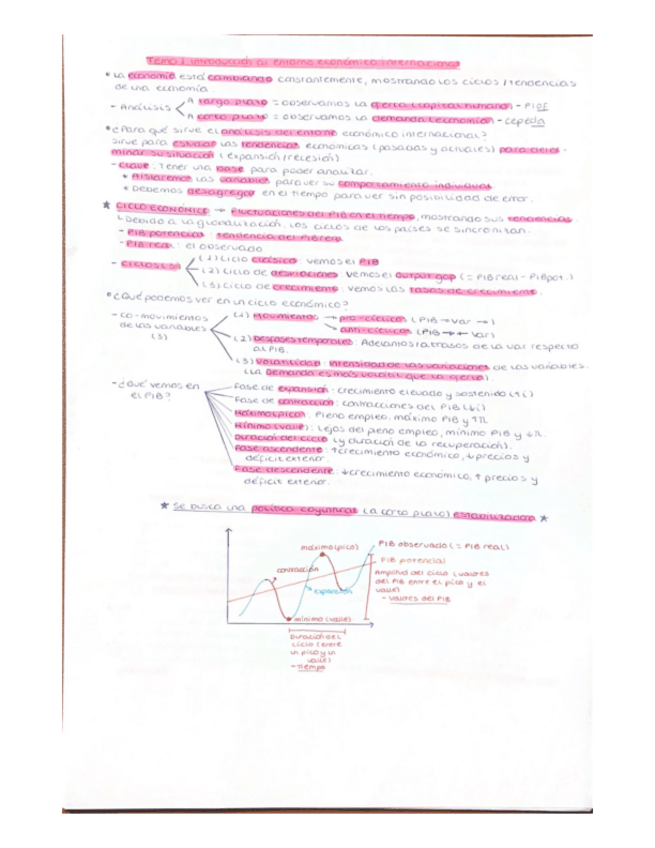 Tema 1 introducción al entorno económico internacional
• La economía está cambiando constantemente, mostrando los ciclos / tendencias
de una economía.
- Análisis
A largo plazo = observamos la oferta (capital humano) -
A corto plazo = observamos la demanda (economía) -
• ¿Para qué sirve el análisis del entorno económico internacional?
Sirve para estudiar las tendencias económicas (pasadas y actuales) para deter-
minar su situación (expansión/recesión)
- Clave: Tener una base para poder analizar.
* Aislaremos las variables para ver su comportamiento individual
* Debemos desagregar en el tiempo para ver sin posibilidad de error.
★ CICLO ECONÓMICO → Fluctuaciones del PIB en el tiempo, mostrando sus tendencias.
↳ Debido a la globalización, los ciclos de los países se sincronizan.
- PIB potencial: tendencia del PIB real
- PIB real: el observado
- Ciclos
(1) Ciclo clásico: vemos el PIB
(2) Ciclo de desviaciones: vemos el output gap (= PIB real - PIB pot.)
(3) Ciclo de crecimiento: vemos las tasas de crecimiento.
• ¿Qué podemos ver en un ciclo económico?
- Co-movimientos
de las variables
(3)
(1) Movimientos → pro-cíclicos (PIB → var →)
→ anti-cíclicos (PIB → ← var)
(2) Desfases temporales: Adelantos/atrasos de la var respecto
al PIB.
(3) Volatilidad: intensidad de las variaciones de las variables.
(La demanda es más volátil que la oferta).
- ¿Qué vemos en
el PIB?
Fase de expansión: crecimiento elevado y sostenido (↑↑)
Fase de contracción: contracciones del PIB (↓↓)
Máximo (pico): Pleno empleo, máximo PIB y ↑π
Mínimo (valle): Lejos del pleno empleo, mínimo PIB y ↓π.
Duración del ciclo (y duración de la recuperación).
Fase ascendente: ↑crecimiento económico, ↓precios y
déficit exterior.
Fase descendente: ↓crecimiento económico, ↑ precios y
déficit exterior.
★ Se busca una política coyuntural (a corto plazo) estabilizadora ★
máximo (pico)
PIB observado (= PIB real)
PIB potencial
contracción
expansión
Amplitud del ciclo (valores
del PIB entre el pico y el
valle)
- Valores del PIB
mínimo (valle)
Duración del
ciclo (entre
un pico y un
valle)
- Tiempo